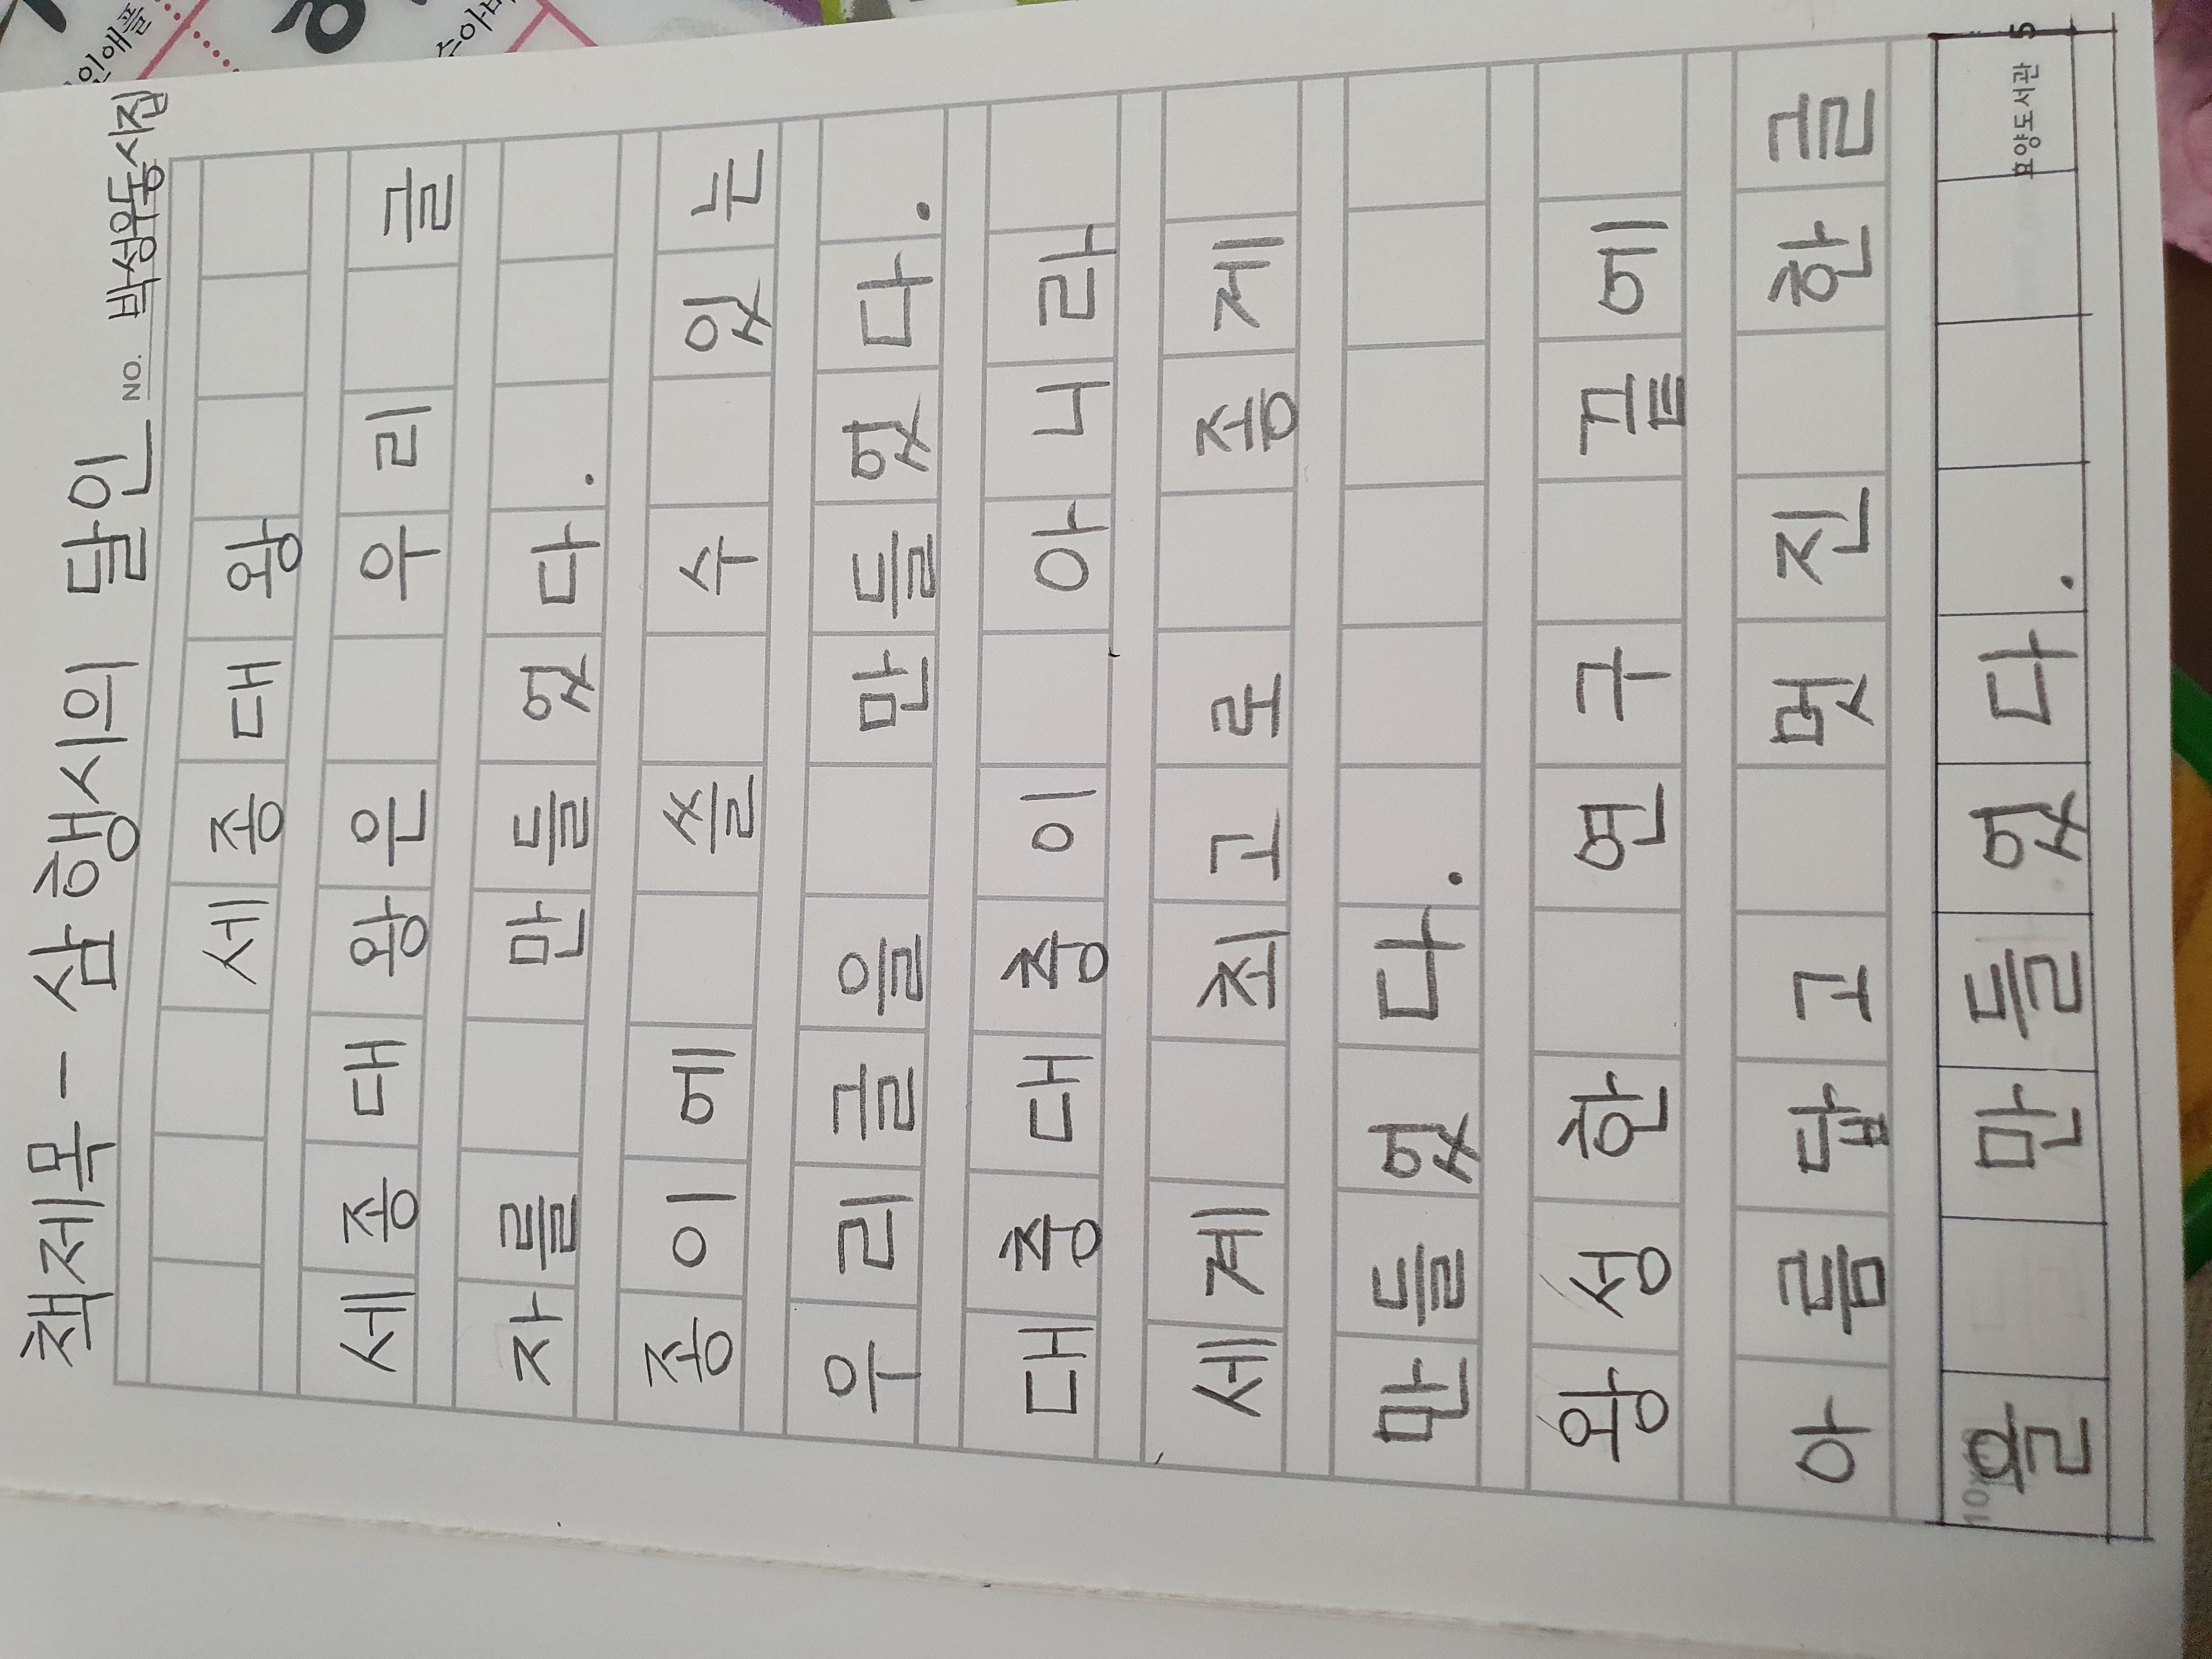 책제목 - 삼행시의 달인 NO. 박성우동시집
세종대왕
세종대왕은 우리 글
자를 만들었다.
종이에 쓸 수 있는
우리글을 만들었다.
대충대충이 아니라
세계 최고로 좋게
만들었다.
왕성한 연구 끝에
아름답고 멋진 한글
을 만들었다.
효양도서관 5